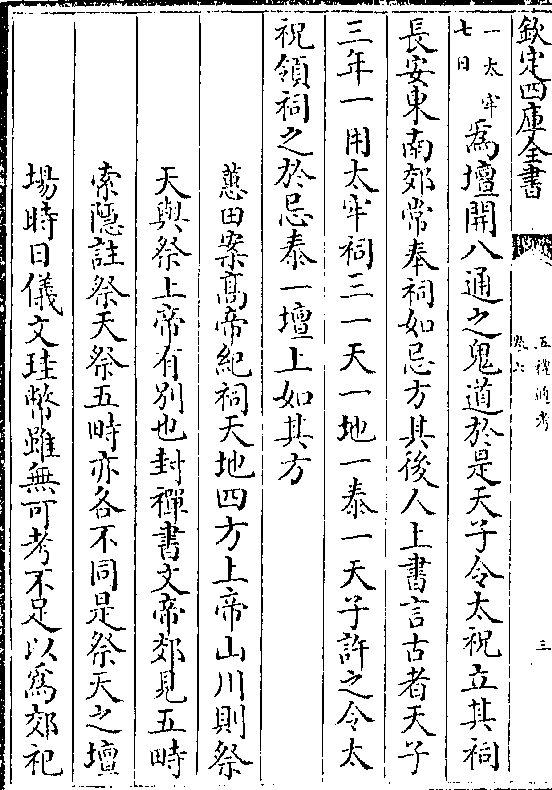 欽定四庫全書
五禮通考
卷六
三
一太牢
七日
為壇開八通之鬼道於是天子令太祝立其祠
長安東南郊常奉祠如忌方其後人上書言古者天子
三年一用太牢祠三一天一地一泰一天子許之令太
祝領祠之於忌泰一壇上如其方
蕙田案高帝紀祠天地四方上帝山川則祭
天與祭上帝有別也封禪書文帝郊見五畤
索隱註祭天祭五畤亦各不同是祭天之壇
場時日儀文珪幣雖無可考不足以為郊祀